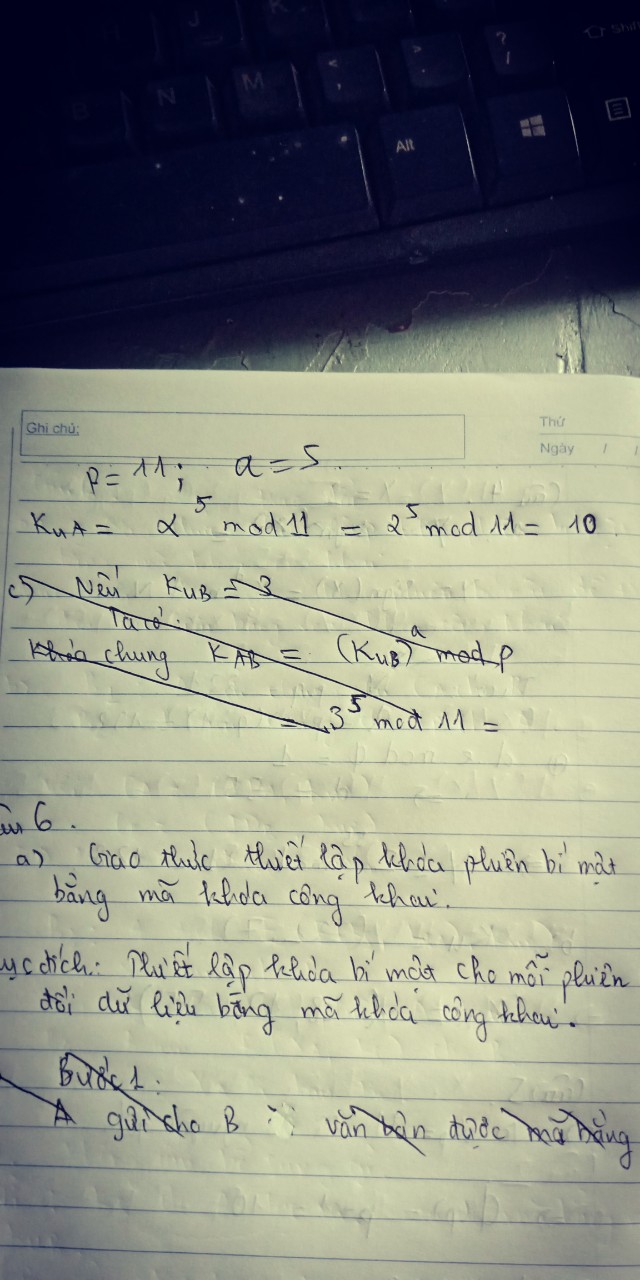 J
K
B
N
M
<
,
>
.
?
/
Shift
Alt
Ghi chú:
Thứ
Ngày / /
p = 11; a = 5.
KuA = α^5 mod 11 = 2^5 mod 11 = 10
c) Nếu KuB = 3
Ta có:
Khóa chung KAB = (KuB)^a mod p
= 3^5 mod 11 =
6.
a) Giao thức thiết lập khóa phiên bí mật
bằng mã khóa công khai.
ục đích: Thiết lập khóa bí mật cho mỗi phiên
đổi dữ liệu bằng mã khóa công khai.
Bước 1:
A gửi cho B văn bản được mã bằng